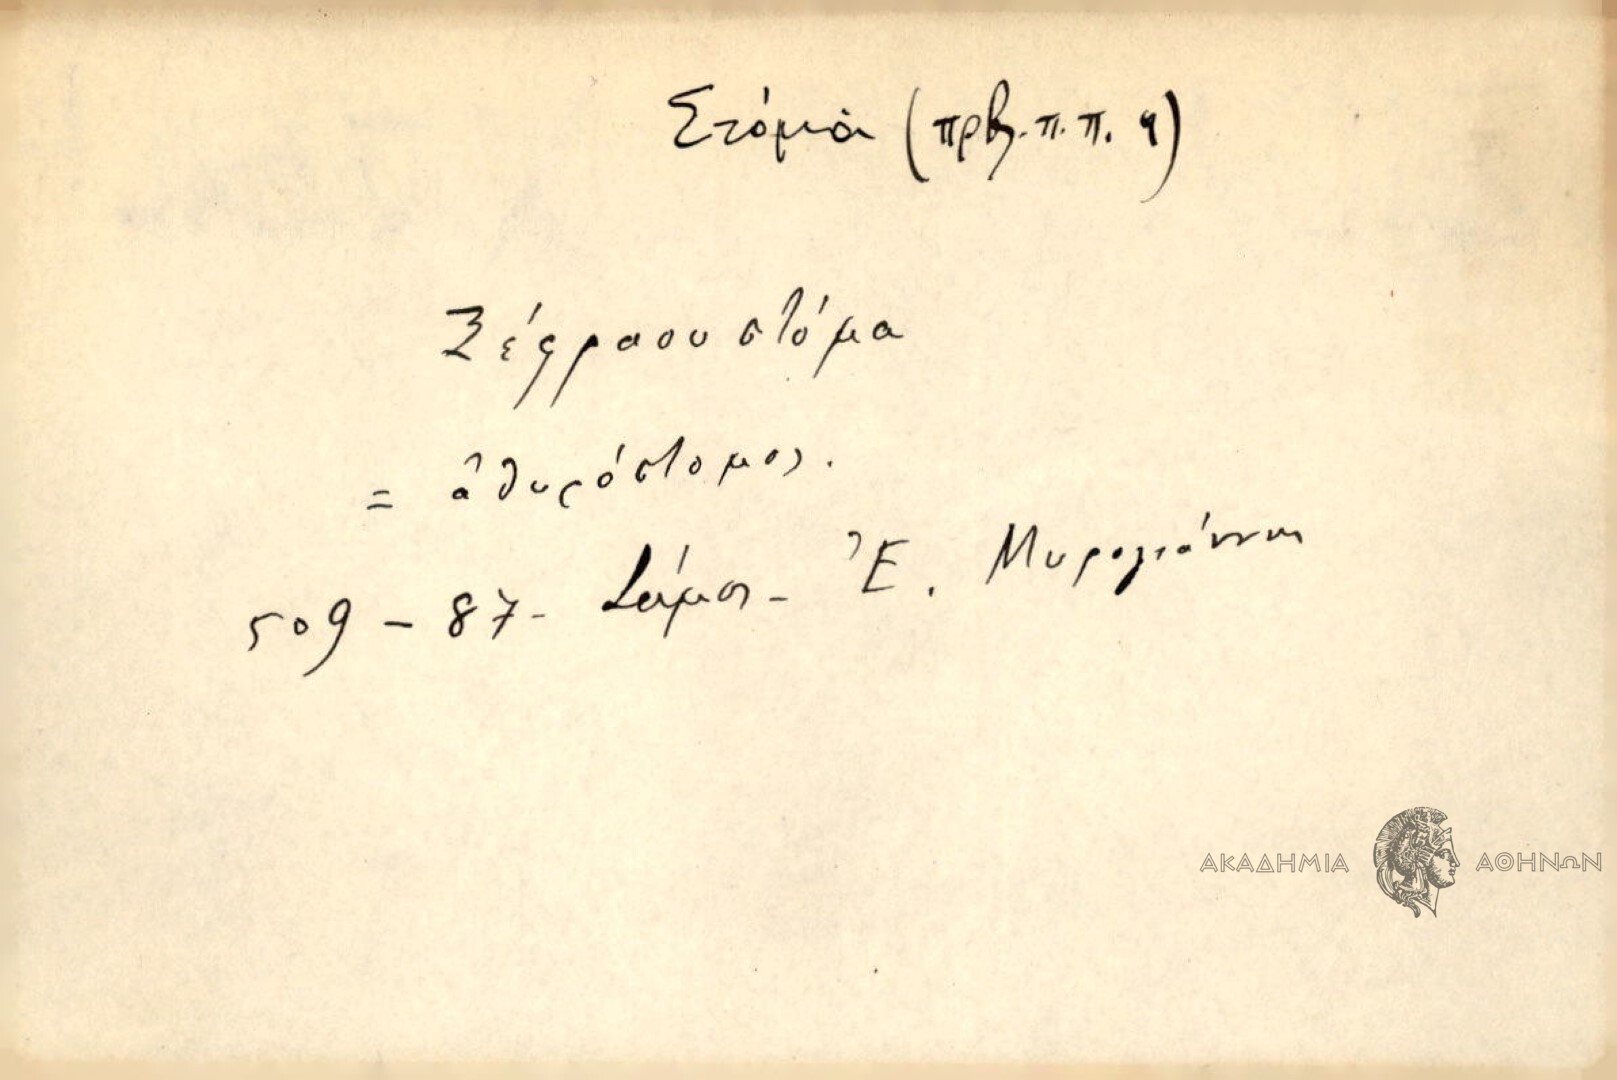 Στόμα (πρβλ. π.π. 4)
Ξέφραου στόμα
= ἀθυρόστομος.
509 - 87 - Σάμος - Ἐ. Μυρογιάννης
ΑΚΑΔΗΜΙΑ ΑΘΗΝΩΝ